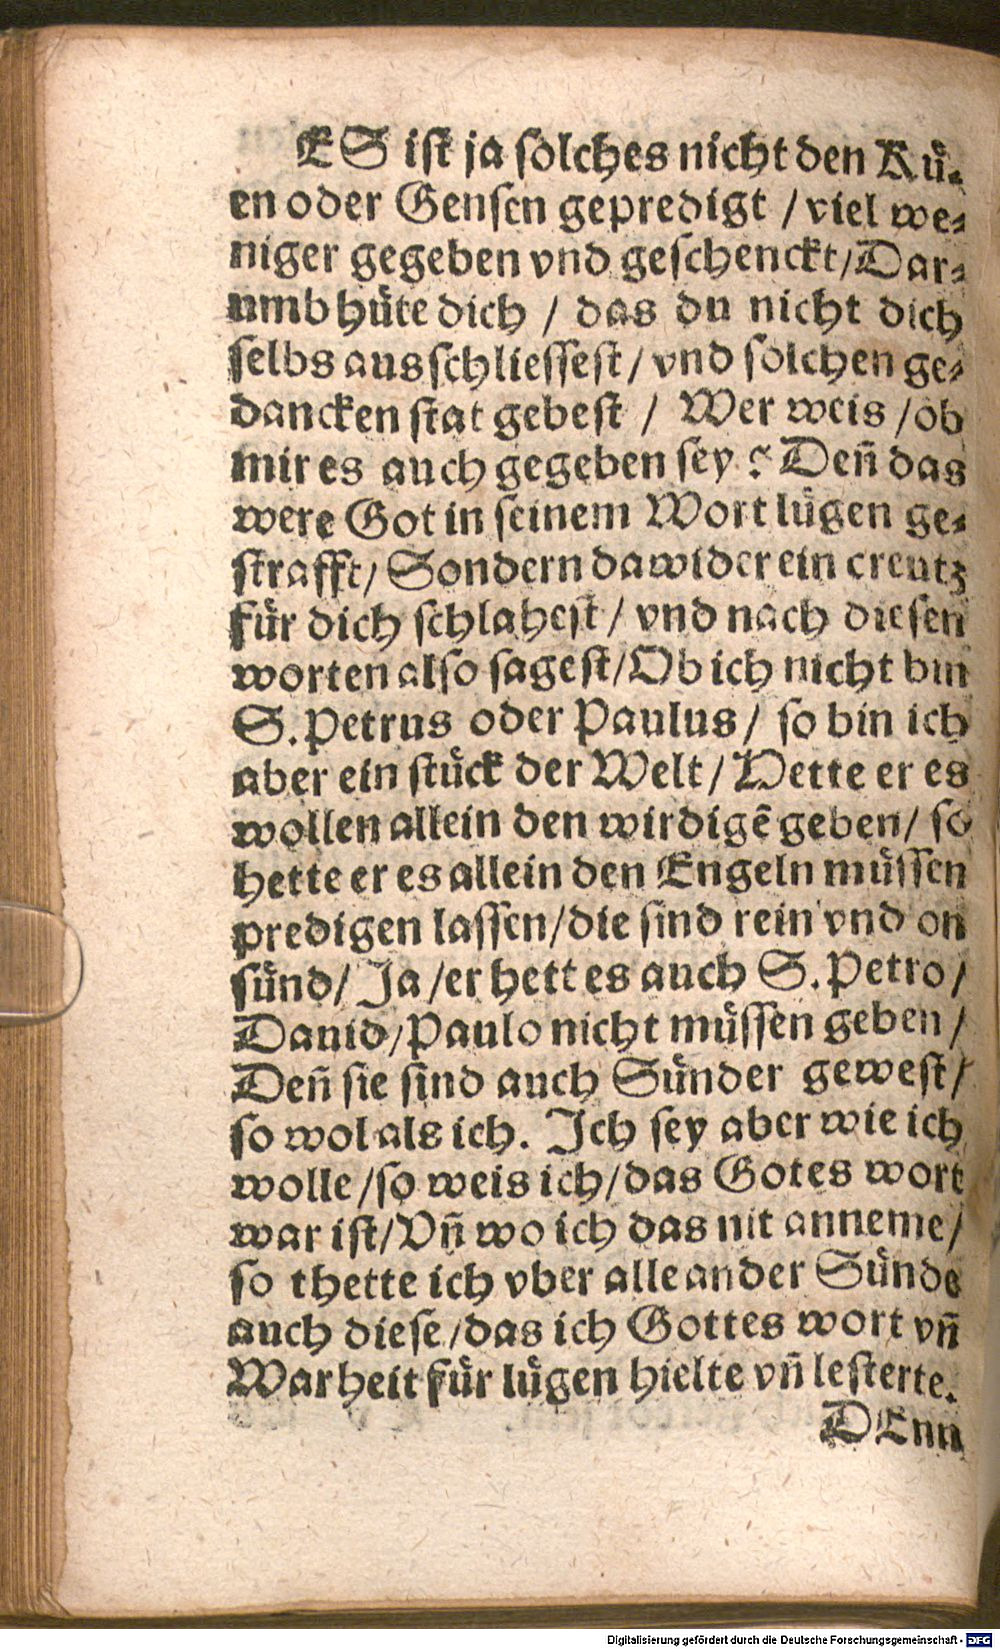 ES ist ja solches nicht den Kü-
en oder Gensen gepredigt / viel we-
niger gegeben vnd geschenckt / Dar-
umb hüte dich / das du nicht dich
selbs ausschliessest / vnd solchen ge-
dancken stat gebest / Wer weis / ob
mir es auch gegeben sey? Deñ das
were Got in seinem Wort lügen ge-
strafft / Sondern dawider ein creutz
für dich schlahest / vnd nach diesen
worten also sagest / Ob ich nicht bin
S. Petrus oder Paulus / so bin ich
aber ein stück der Welt / Hette er es
wollen allein den wirdigē geben / so
hette er es allein den Engeln müssen
predigen lassen / die sind rein vnd on
sünd / Ja / er hett es auch S. Petro /
Dauid / Paulo nicht müssen geben /
Deñ sie sind auch Sünder gewest /
so wol als ich. Ich sey aber wie ich
wolle / so weis ich / das Gotes wort
war ist / Vñ wo ich das nit anneme /
so thette ich vber alle ander Sünde
auch diese / das ich Gottes wort vñ
Warheit für lügen hielte vñ lesterte.
DEnn
Digitalisierung gefördert durch die Deutsche Forschungsgemeinschaft - DFG